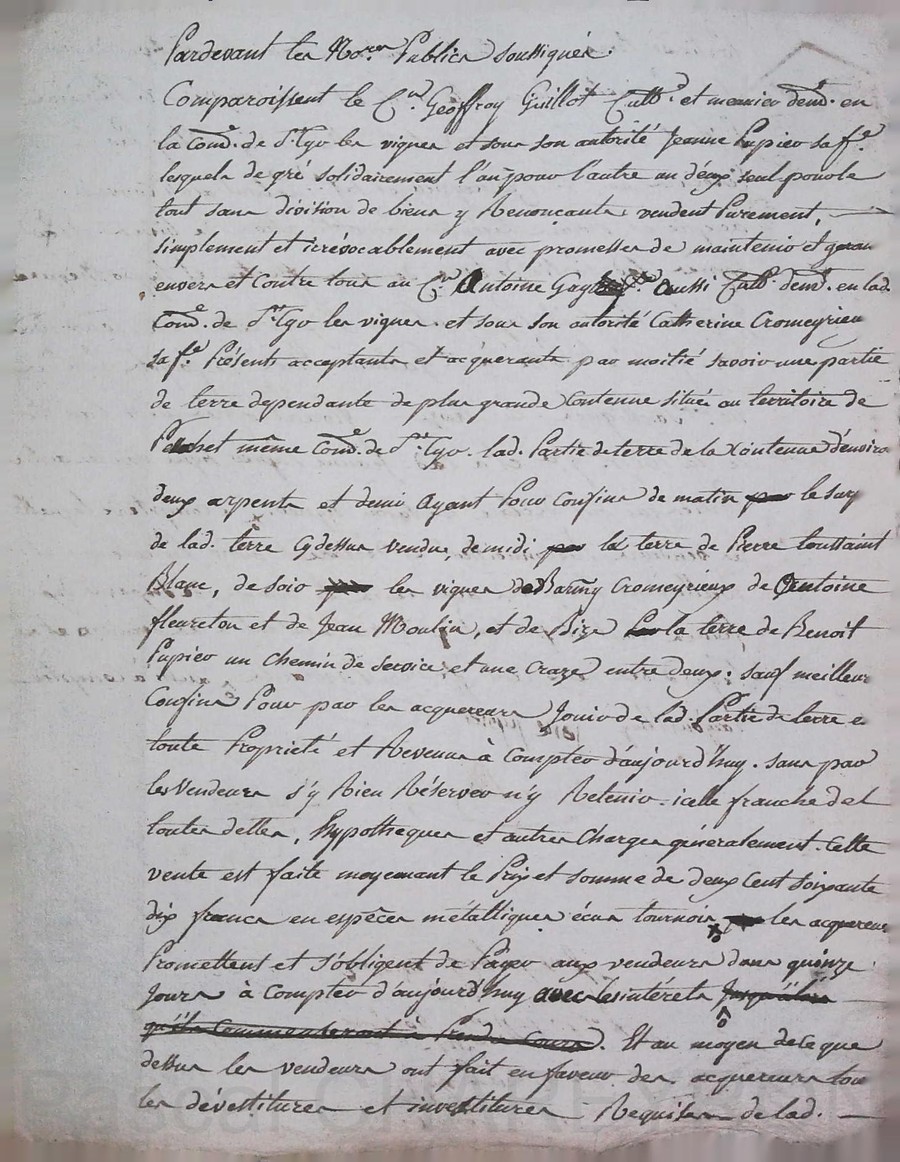 Pardevant les No.res Publics soussignés.
Comparoissent le C.en Geoffroy Guillot Cult.r et meunier dem.t en
la Com.e de S.t Cyr les vignes et sous son autorité Jeanne Pupier sa f.e
lesquels de gré solidairement l'un pour l'autre un d'eux seul pour le
tout sans division de biens y Renonçants, vendent Purement,
simplement et irrévocablement avec promesse de maintenir et garan
envers et Contre tous au C.en Antoine Gay aussi Cult.r dem.t en lad.
Com.e de S.t Cyr les vignes et sous son autorité Catherine Cromeyrieu
sa f.e Présents acceptants et acquerants par moitié savoir une partie
de terre dependante de plus grande Contenue située au territoire de
même Com.e de S.t Cyr. lad. Partie de terre de la Contenue d'enviro
deux arpents et demi Ayant Pour Confins de matin le sur
de lad. terre cy dessus vendue, de midi la terre de Pierre toussaint
Blanc, de soir les vignes de Barmy Cromeyrieux de Antoine
fleureton et de Jean Moulin, et de Bize la terre de Benoit
Pupier un chemin de service et une Craze entre deux; sauf meilleur
Confins Pour par les acquereurs Jouir de lad. Partie de terre e
toute Proprieté et Revenus à Compter d'aujourd'huy. sans par
les Vendeurs s'y Rien Réserver n'y Retenir. icelle franche de t
toutes dettes, hypotheques et autres Charges généralement. Cette
vente est faite moyennant le Prix et somme de deux Cent soixante
dix francs en espêces métalliques écus tournois les acquereur
Promettent et s'obligent de Payer aux vendeurs dans quinze
Jours à Compter d'aujourd'huy avec les intérets jusqu'alors
qu'ils Commenceront à Prendre Cours. Et au moyen de ce que
dessus les vendeurs ont fait en faveur des acquereurs tou
les dévestitures et investitures Requises de lad.